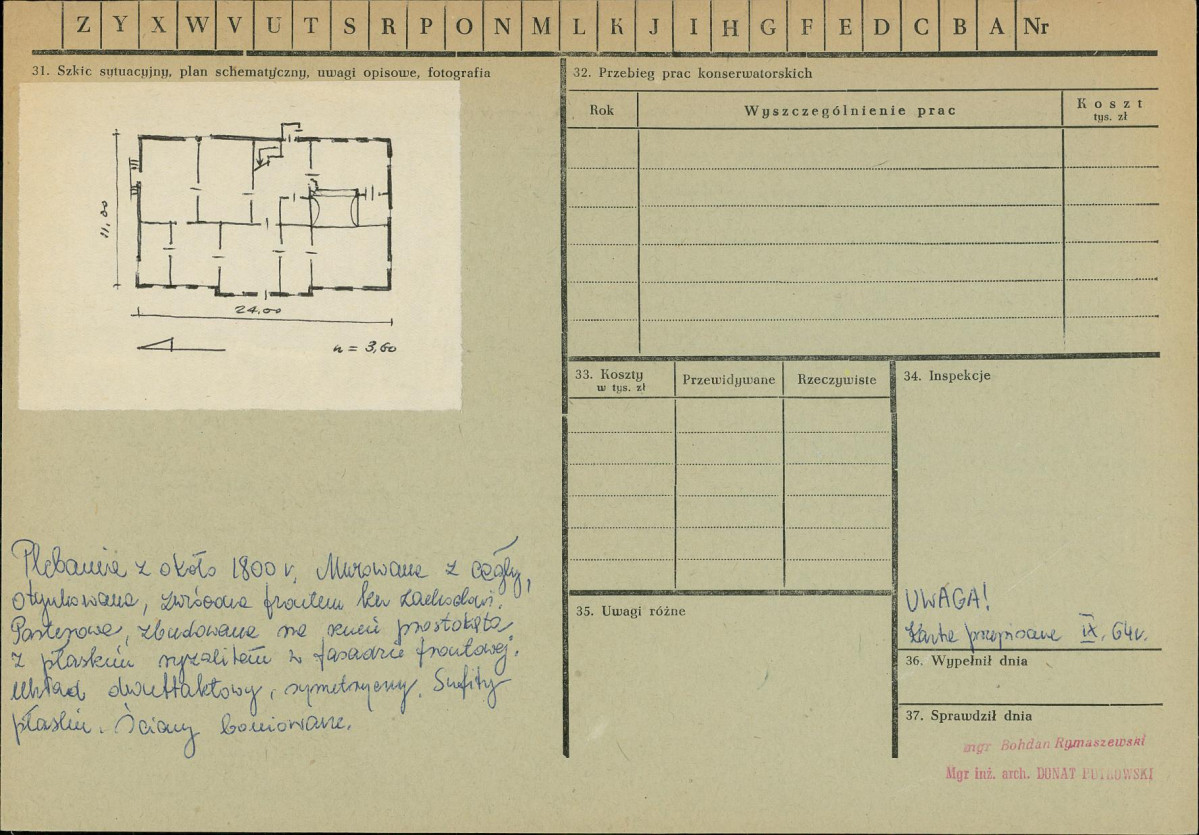 Z Y X W V U T S R P O N M L K J I H G F E D C B A Nr
31. Szkic sytuacyjny, plan schematyczny, uwagi opisowe, fotografia
11,00
24,00
h = 3,60
Plebania z około 1800 r. Murowana z cegły,
otynkowana, zwrócona frontem ku zachodowi.
Parterowa, zbudowana na rzucie prostokąta
z płaskim ryzalitem w fasadzie frontowej.
Układ dwutraktowy, symetryczny. Sufity
płaskie. Ściany boniowane.
32. Przebieg prac konserwatorskich
Rok Wyszczególnienie prac Koszt
tys. zł
33. Koszty
w tys. zł Przewidywane Rzeczywiste
34. Inspekcje
UWAGA!
Karta przepisana IX. 64 r.
35. Uwagi różne
36. Wypełnił dnia
37. Sprawdził dnia
mgr Bohdan Rymaszewski
Mgr inż. arch. DONAT